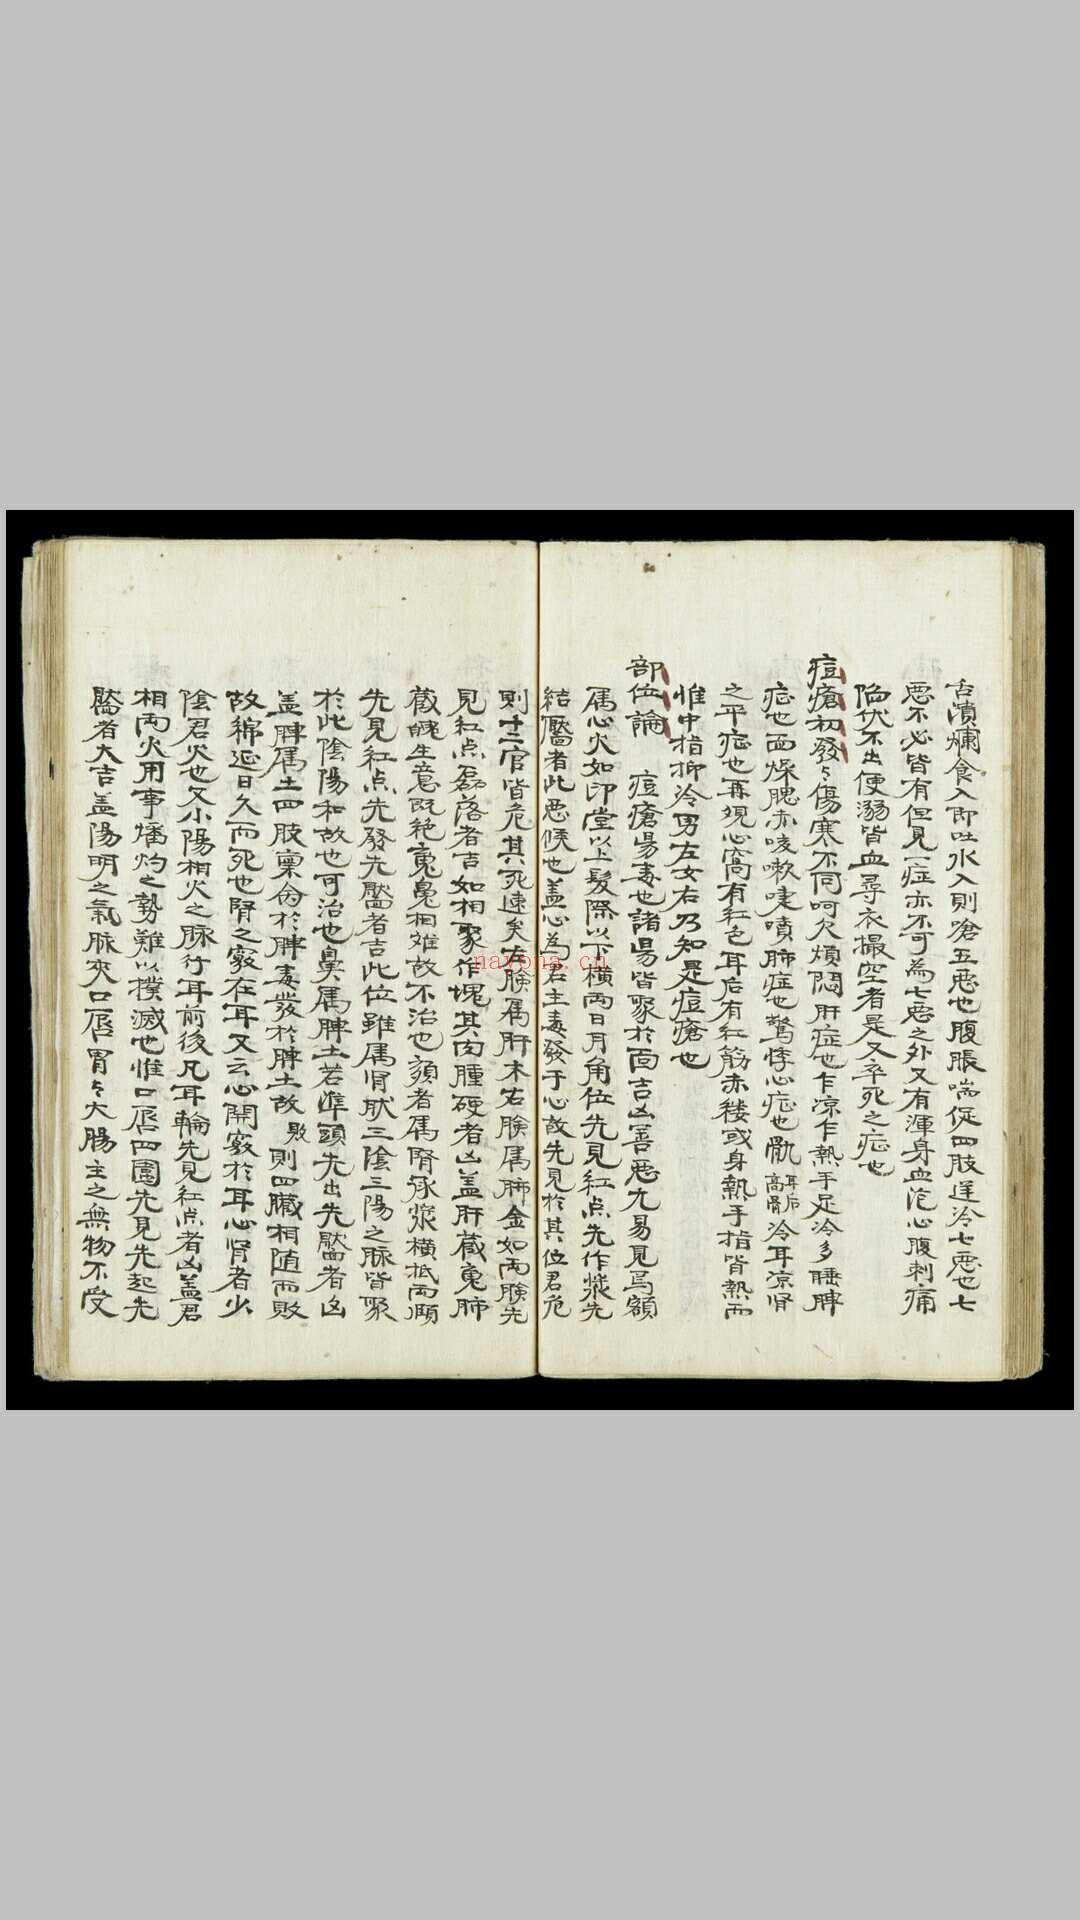 舌潰爛食入即吐水入則嗆五惡也腹脹喘促四肢逆冷七惡也七
惡不必皆有但見一症亦不可為七惡之外又有渾身血泡心腹刺痛
陷伏不出便溺皆血尋衣撮空者是又卒死之症也
痘瘡初發々傷寒不同呵欠煩悶肝症也乍凉乍熱手足冷多睡脾
症也面燥腮赤咳嗽嚏噴肺症也驚悸心症也骩耳后高骨冷耳凉腎
之平症也再覌心窩有紅色耳后有紅筋赤縷或身熱手指皆熱而
惟中指抑冷男左女右乃知是痘瘡也
部位論 痘瘡昜毒也諸昜皆聚於面吉凶善惡尢易見焉額
属心火如印堂以上髮際以下橫兩日月角位先見紅点先作漿先
結靨者此惡候也盖心為君主毒發于心故先見於其位君危
則十二官皆危其死速矣左臉属肝木右臉属肺金如兩臉先
見紅点磊落者吉如相聚作塊其肉腫硬者凶盖肝藏䰟肺
藏魄生意既絶䰟魄相离故不治也頦者属腎承漿橫抵兩頤
先見紅点先發先靨者吉此位雖属腎肰三陰三陽之脉皆聚
於此陰陽和故也可治也鼻属脾土若準頭先出先靨者凶
盖脾属土四肢稟命於脾毒發於脾土故敗則四臟相随而敗
故綿延日久而死也腎之竅在耳又云心開竅於耳心腎者少
陰君火也又小陽相火之脉行耳前後凡耳輪先見紅点者凶盖君
相兩火用事燔灼之勢難以撲滅也惟口唇四圍先見先起先
靨者大吉盖陽明之氣脉夾口唇胃々大腸主之無物不受
nayona.cn